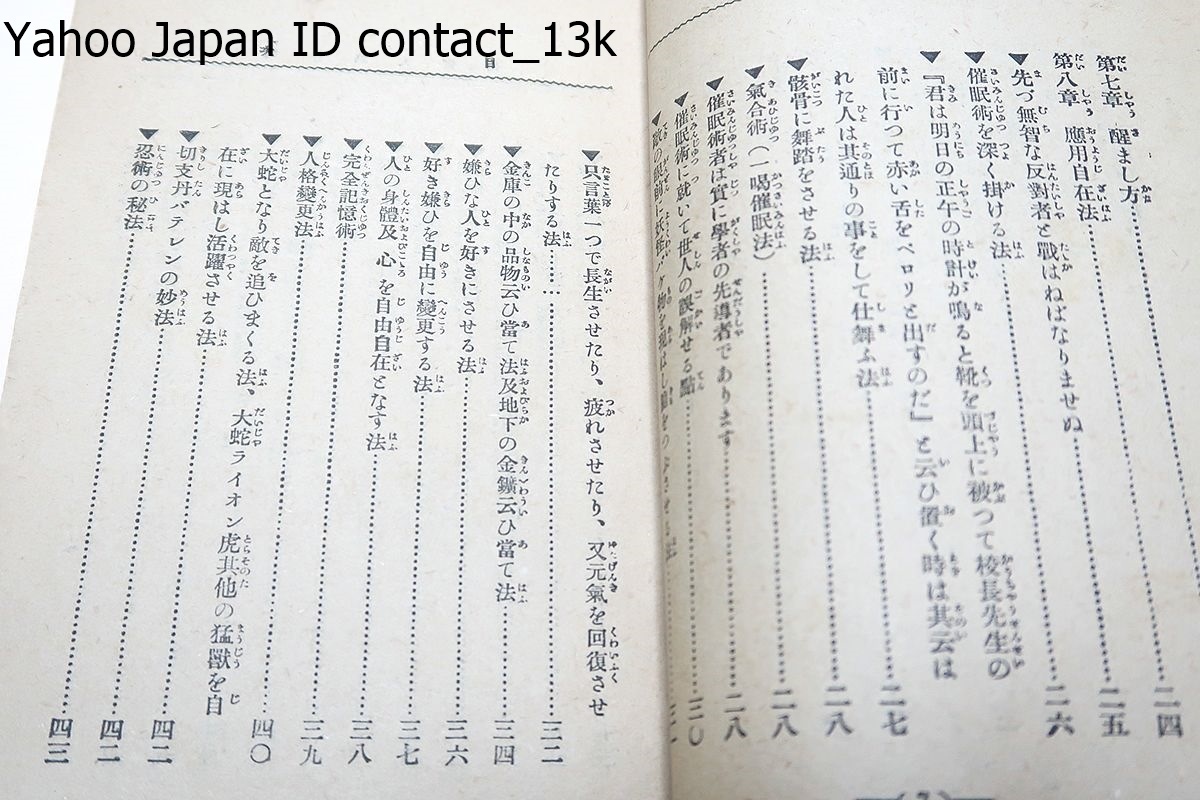 Yahoo Japan ID contact_13k
第七章 醒まし方……二四
第八章 應用自在法……二五
▼先づ無智な反對者と戰はねばなりませぬ……二六
▼催眠術を深く掛ける法
『君は明日の正午の時計が鳴ると靴を頭上に被つて校長先生の
前に行つて赤い舌をペロリと出すのだ』と云ひ置く時は其云は
れた人は其通りの事をして仕舞ふ法……二七
▼骸骨に舞踏をさせる法……二八
▼氣合術(一喝催眠法)……二八
▼催眠術者は實に學者の先導者であります……二八
▼催眠術に就いて世人の誤解せる點……三〇
目
▼只言葉一つで長生させたり、疲れさせたり、又元氣を回復させ
たりする法……三二
▼金庫の中の品物云ひ當て法及地下の金鑛云ひ當て法……三四
▼嫌ひな人を好きにさせる法……三六
▼好き嫌ひを自由に變更する法……三七
▼人の身體及心を自由自在となす法……三八
▼完全記憶術……三九
▼人格變更法……四〇
▼大蛇となり敵を追ひまくる法、大蛇ライオン虎其他の猛獸を自
在に現はし活躍させる法……四二
▼切支丹バテレンの妙法……四二
▼忍術の秘法……四三